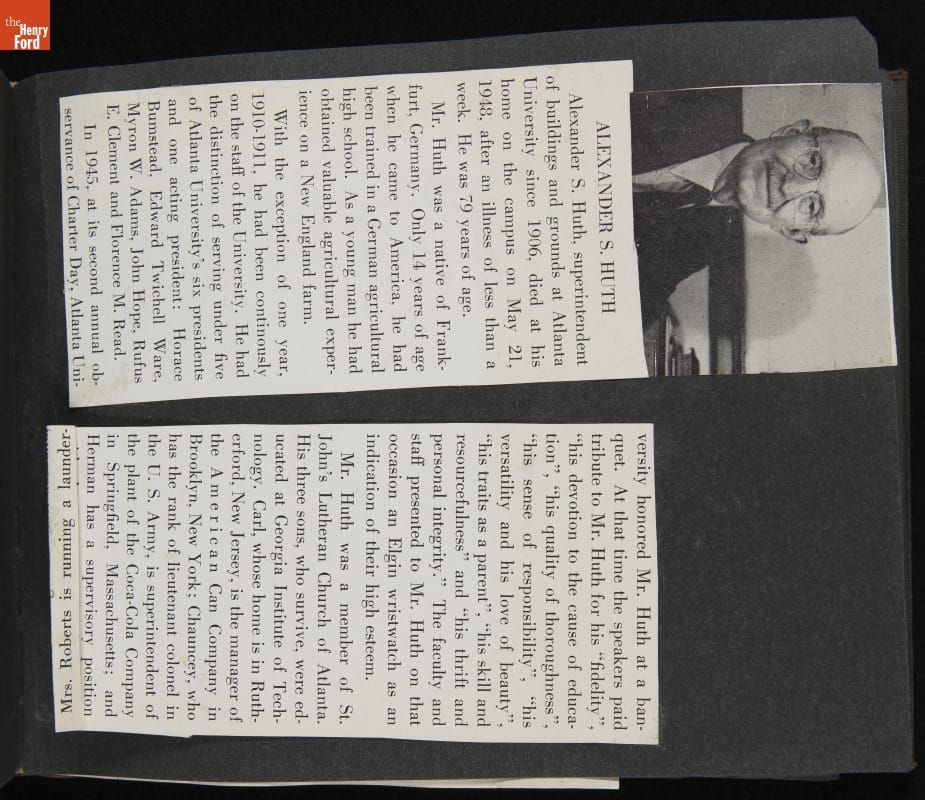 the
Henry
Ford
ALEXANDER S. HUTH
Alexander S. Huth, superintendent
of buildings and grounds at Atlanta
University since 1906, died at his
home on the campus on May 21,
1948, after an illness of less than a
week. He was 79 years of age.
Mr. Huth was a native of Frank-
furt, Germany. Only 14 years of age
when he came to America, he had
been trained in a German agricultural
high school. As a young man he had
obtained valuable agricultural exper-
ience on a New England farm.
With the exception of one year,
1910-1911, he had been continously
on the staff of the University. He had
the distinction of serving under five
of Atlanta University's six presidents
and one acting president: Horace
Bumstead, Edward Twichell Ware,
Myron W. Adams, John Hope, Rufus
E. Clement and Florence M. Read.
In 1945, at its second annual ob-
servance of Charter Day, Atlanta Uni-
versity honored Mr. Huth at a ban-
quet. At that time the speakers paid
tribute to Mr. Huth for his "fidelity",
"his devotion to the cause of educa-
tion", "his quality of thoroughness",
"his sense of responsibility", "his
versatility and his love of beauty",
"his traits as a parent", "his skill and
resourcefulness" and "his thrift and
personal integrity." The faculty and
staff presented to Mr. Huth on that
occasion an Elgin wristwatch as an
indication of their high esteem.
Mr. Huth was a member of St.
John's Lutheran Church of Atlanta.
His three sons, who survive, were ed-
ucated at Georgia Institute of Tech-
nology. Carl, whose home is in Ruth-
erford, New Jersey, is the manager of
the American Can Company in
Brooklyn, New York; Chauncey, who
has the rank of lieutenant colonel in
the U. S. Army, is superintendent of
the plant of the Coca-Cola Company
in Springfield, Massachusetts; and
Herman has a supervisory position
Mrs. Roberts is running a launder-